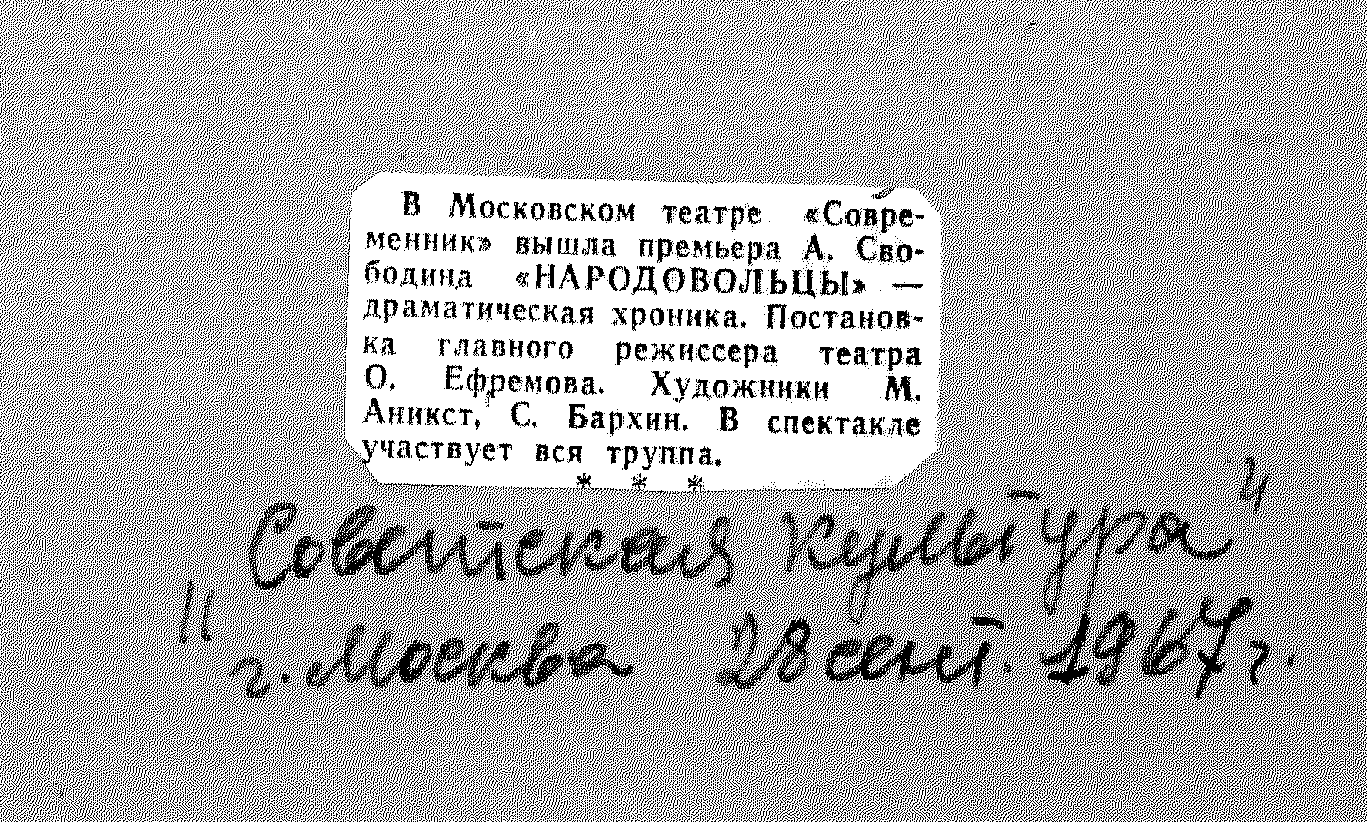 В Московском театре «Совре-
менник» вышла премьера А. Сво-
бодина «НАРОДОВОЛЬЦЫ» —
драматическая хроника. Постанов-
ка главного режиссера театра
О. Ефремова. Художники М.
Аникст, С. Бархин. В спектакле
участвует вся труппа.
* * *
"Советская культура"
г. Москва 28 сент. 1967 г.